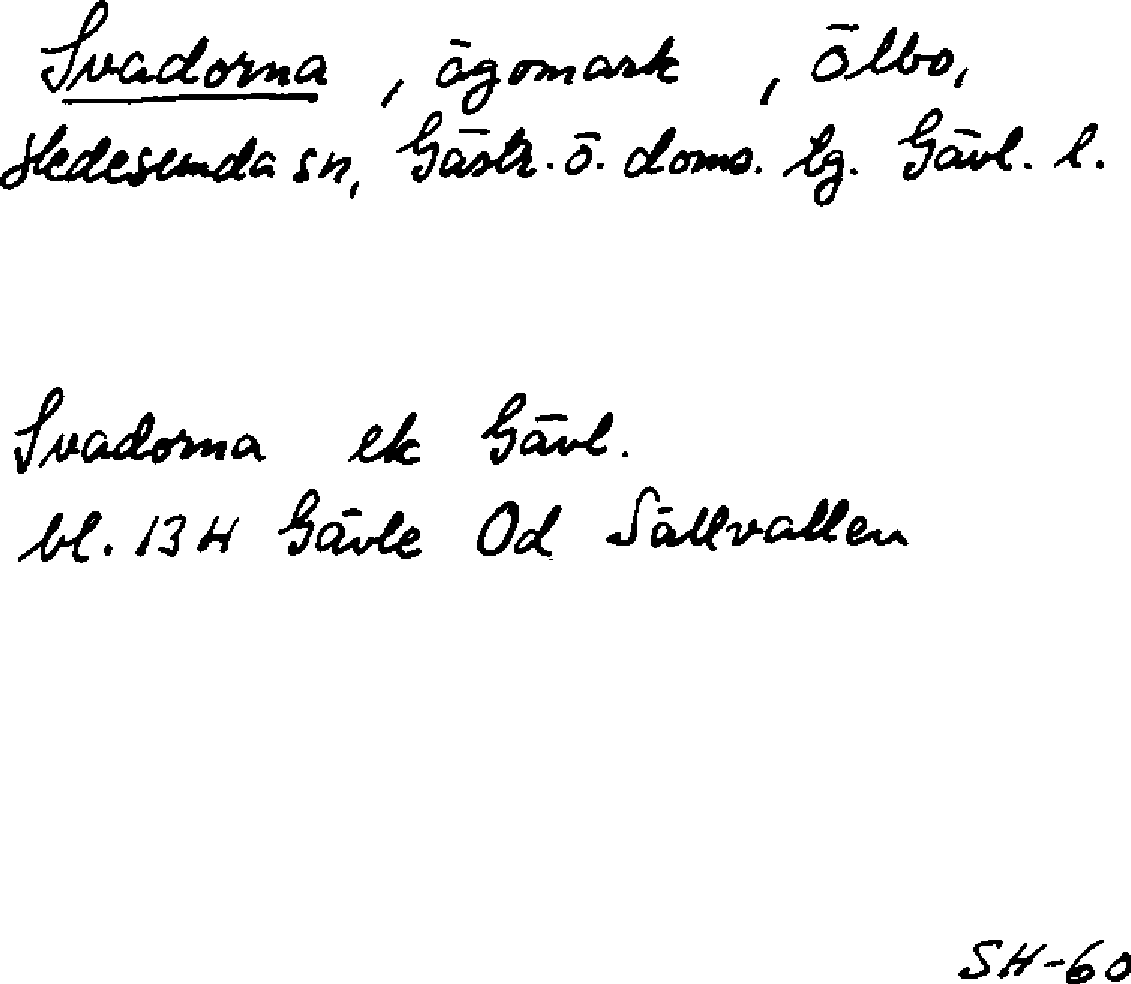 Svadorna, ägomark, Ölbo,
Hedesunda sn, Gästr. ö. doms. tg. Gävl. l.
Svadorna ek Gävl.
bl. 13H Gävle Od Sällvallen
SH-60